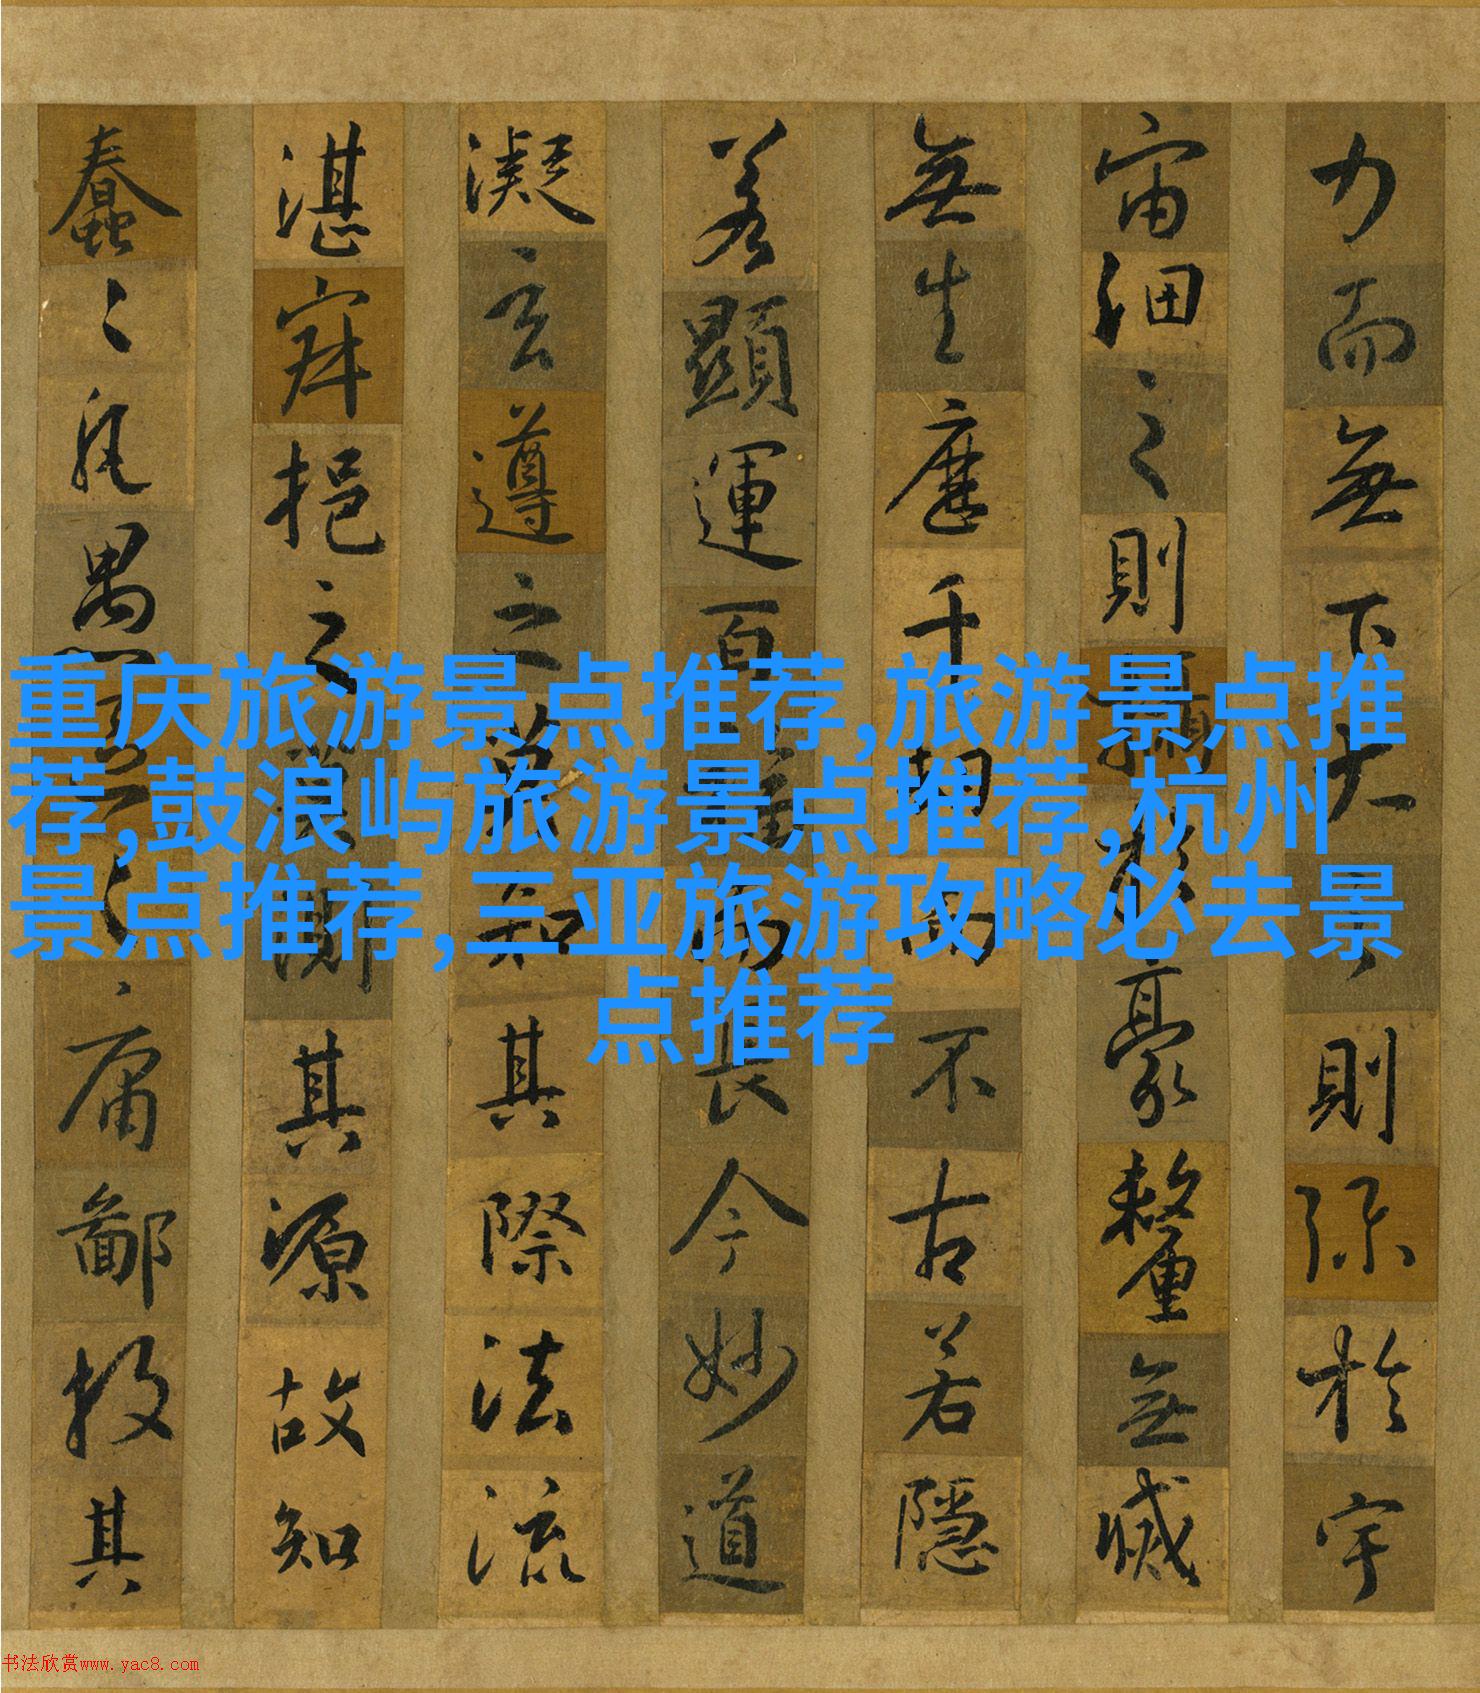 力而無下大之則弥於宇
宙細之則攝於豪釐無滅
無生歷千劫而不古若隱
若顯運百福而長今妙道
凝玄遵之莫知其際法流
湛寂挹之莫測其源故知
蠢々凡愚區々庸鄙投其
重庆旅游景点推荐,旅游景点推
荐,鼓浪屿旅游景点推荐,杭州
景点推荐,三亚旅游攻略必去景
点推荐
书法欣赏www.yac8.com